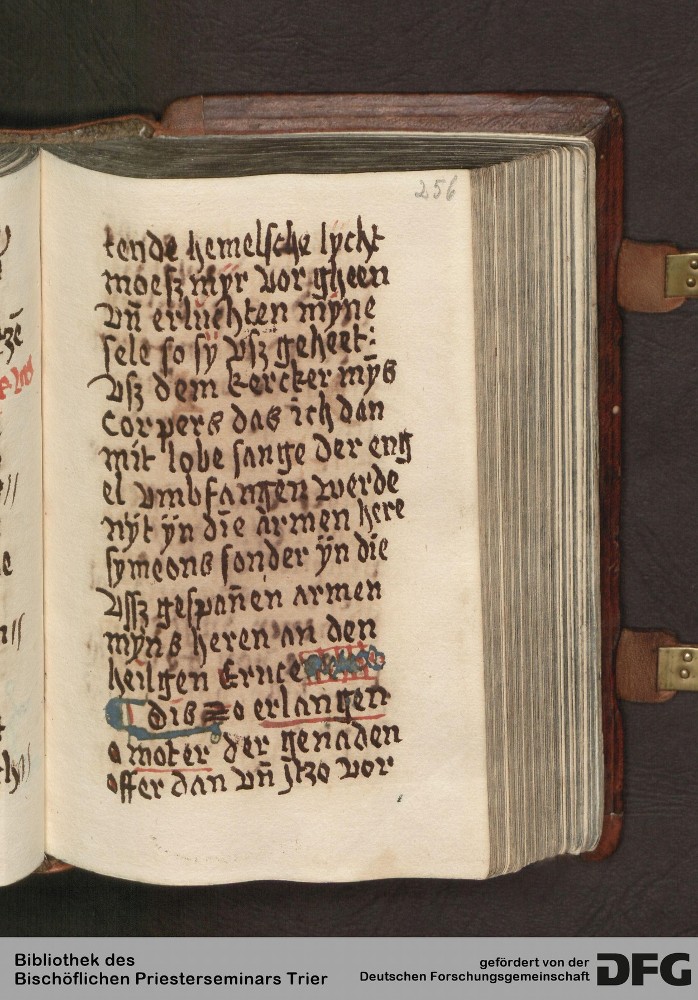 256
tende hemelsche lycht
moesz myr vor gheen
vn̄ erluehten myne
sele so sy vsz geheet:
vsz dem kercker mȳs
Corpers das ich dan
mit lobe sange der eng
el vmbfangen werde
nyt yn die armen here
symeons sonder yn die
vssz gespan̄en armen
myns heren an den
heilgen Cruce
Dis zo erlangen
o moter der genaden
offer dan vn̄ Jtzo vor
Bibliothek des
Bischöflichen Priesterseminars Trier
gefördert von der
Deutschen Forschungsgemeinschaft
DFG